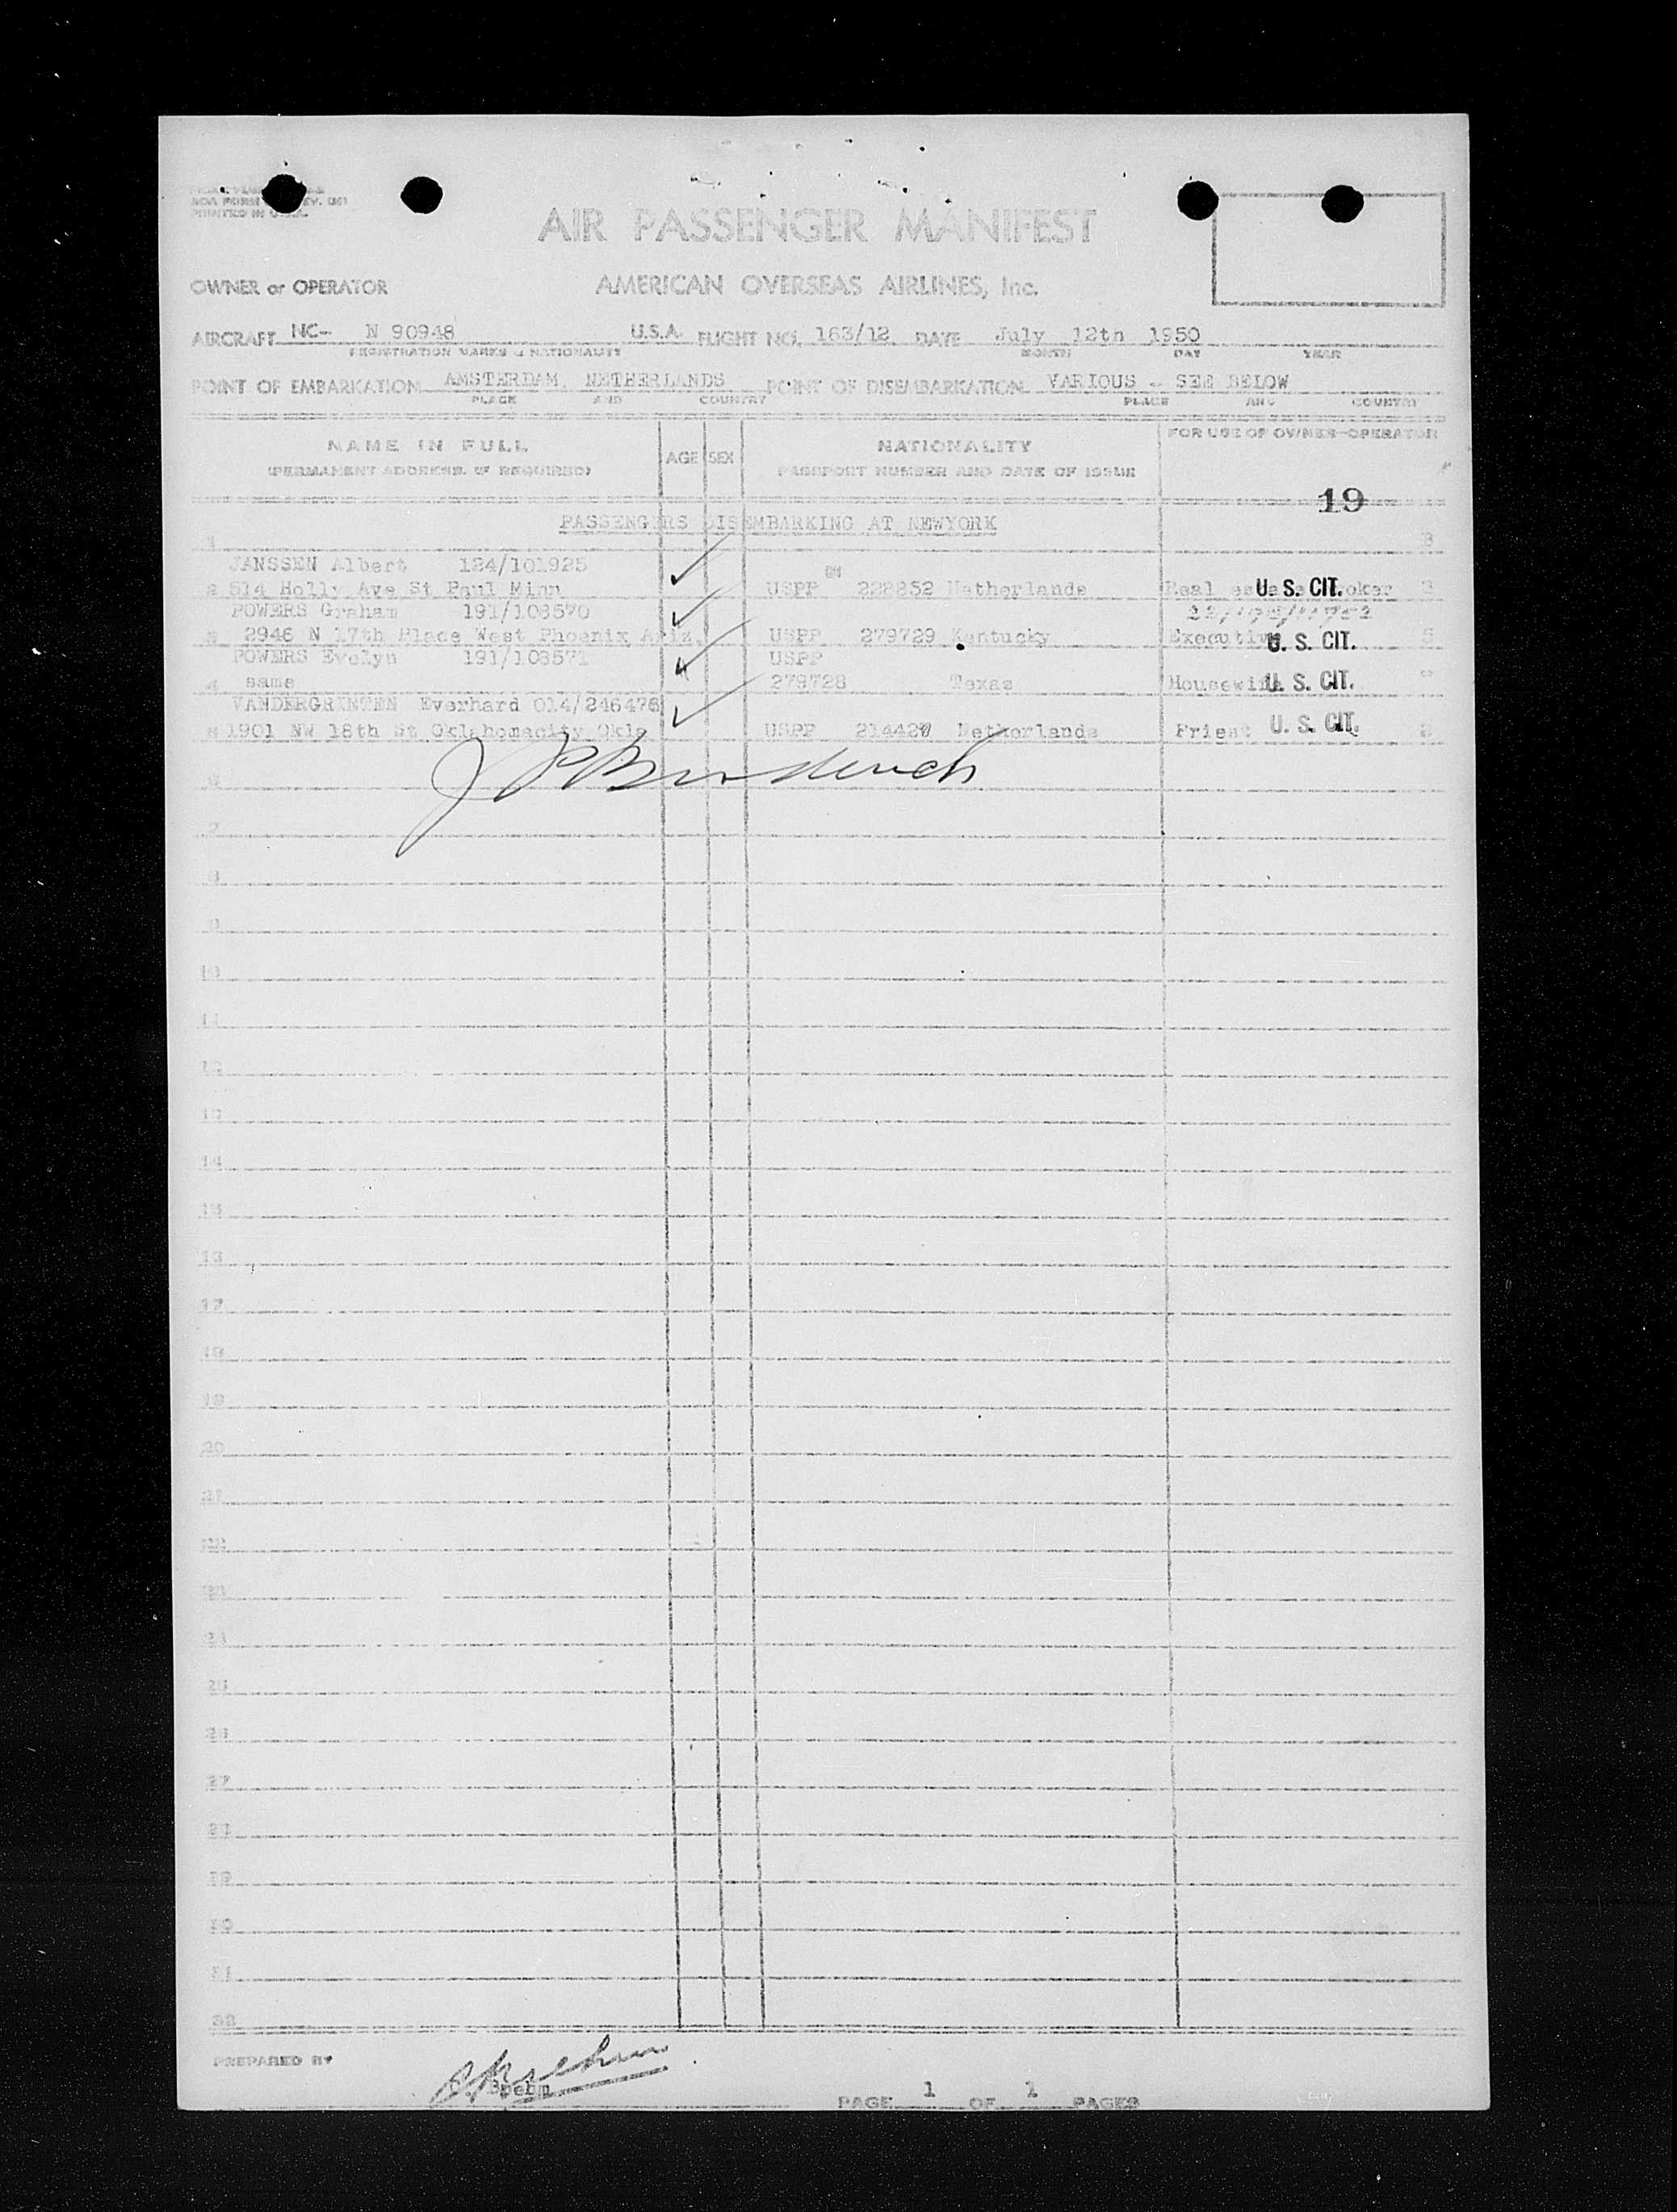 PRINTED IN U.S.A.
AIR PASSENGER MANIFEST
OWNER or OPERATOR AMERICAN OVERSEAS AIRLINES, Inc.
AIRCRAFT NC- N 90948 U.S.A. FLIGHT NO. 163/12 DATE July 12th 1950
REGISTRATION MARKS & NATIONALITY MONTH DAY YEAR
POINT OF EMBARKATION AMSTERDAM, NETHERLANDS POINT OF DISEMBARKATION VARIOUS - SEE BELOW
PLACE AND COUNTRY PLACE AND COUNTRY
NAME IN FULL AGE SEX NATIONALITY FOR USE OF OWNER-OPERATOR
(PERMANENT ADDRESS, IF REQUIRED) PASSPORT NUMBER AND DATE OF ISSUE
19
PASSENGERS DISEMBARKING AT NEWYORK
1
JANSSEN Albert 124/101925
2 514 Holly Ave St Paul Minn USPP 228852 Netherlands Real U. S. CIT.
POWERS Graham 191/108570
3 2946 N 17th Place West Phoenix Ariz. USPP 279729 Kentucky Executive U. S. CIT.
POWERS Evelyn 191/108571 USPP
4 same 279728 Texas Housewife U. S. CIT.
VANDERGRINTEN Everhard 014/246476
5 1901 NW 18th St Oklahomacity Okla USPP Netherlands Priest U. S. CIT.
6
7
8
9
10
11
12
13
14
15
16
17
18
19
20
21
22
23
24
25
26
27
28
29
30
31
32
PREPARED BY
PAGE 1 OF 1 PAGES